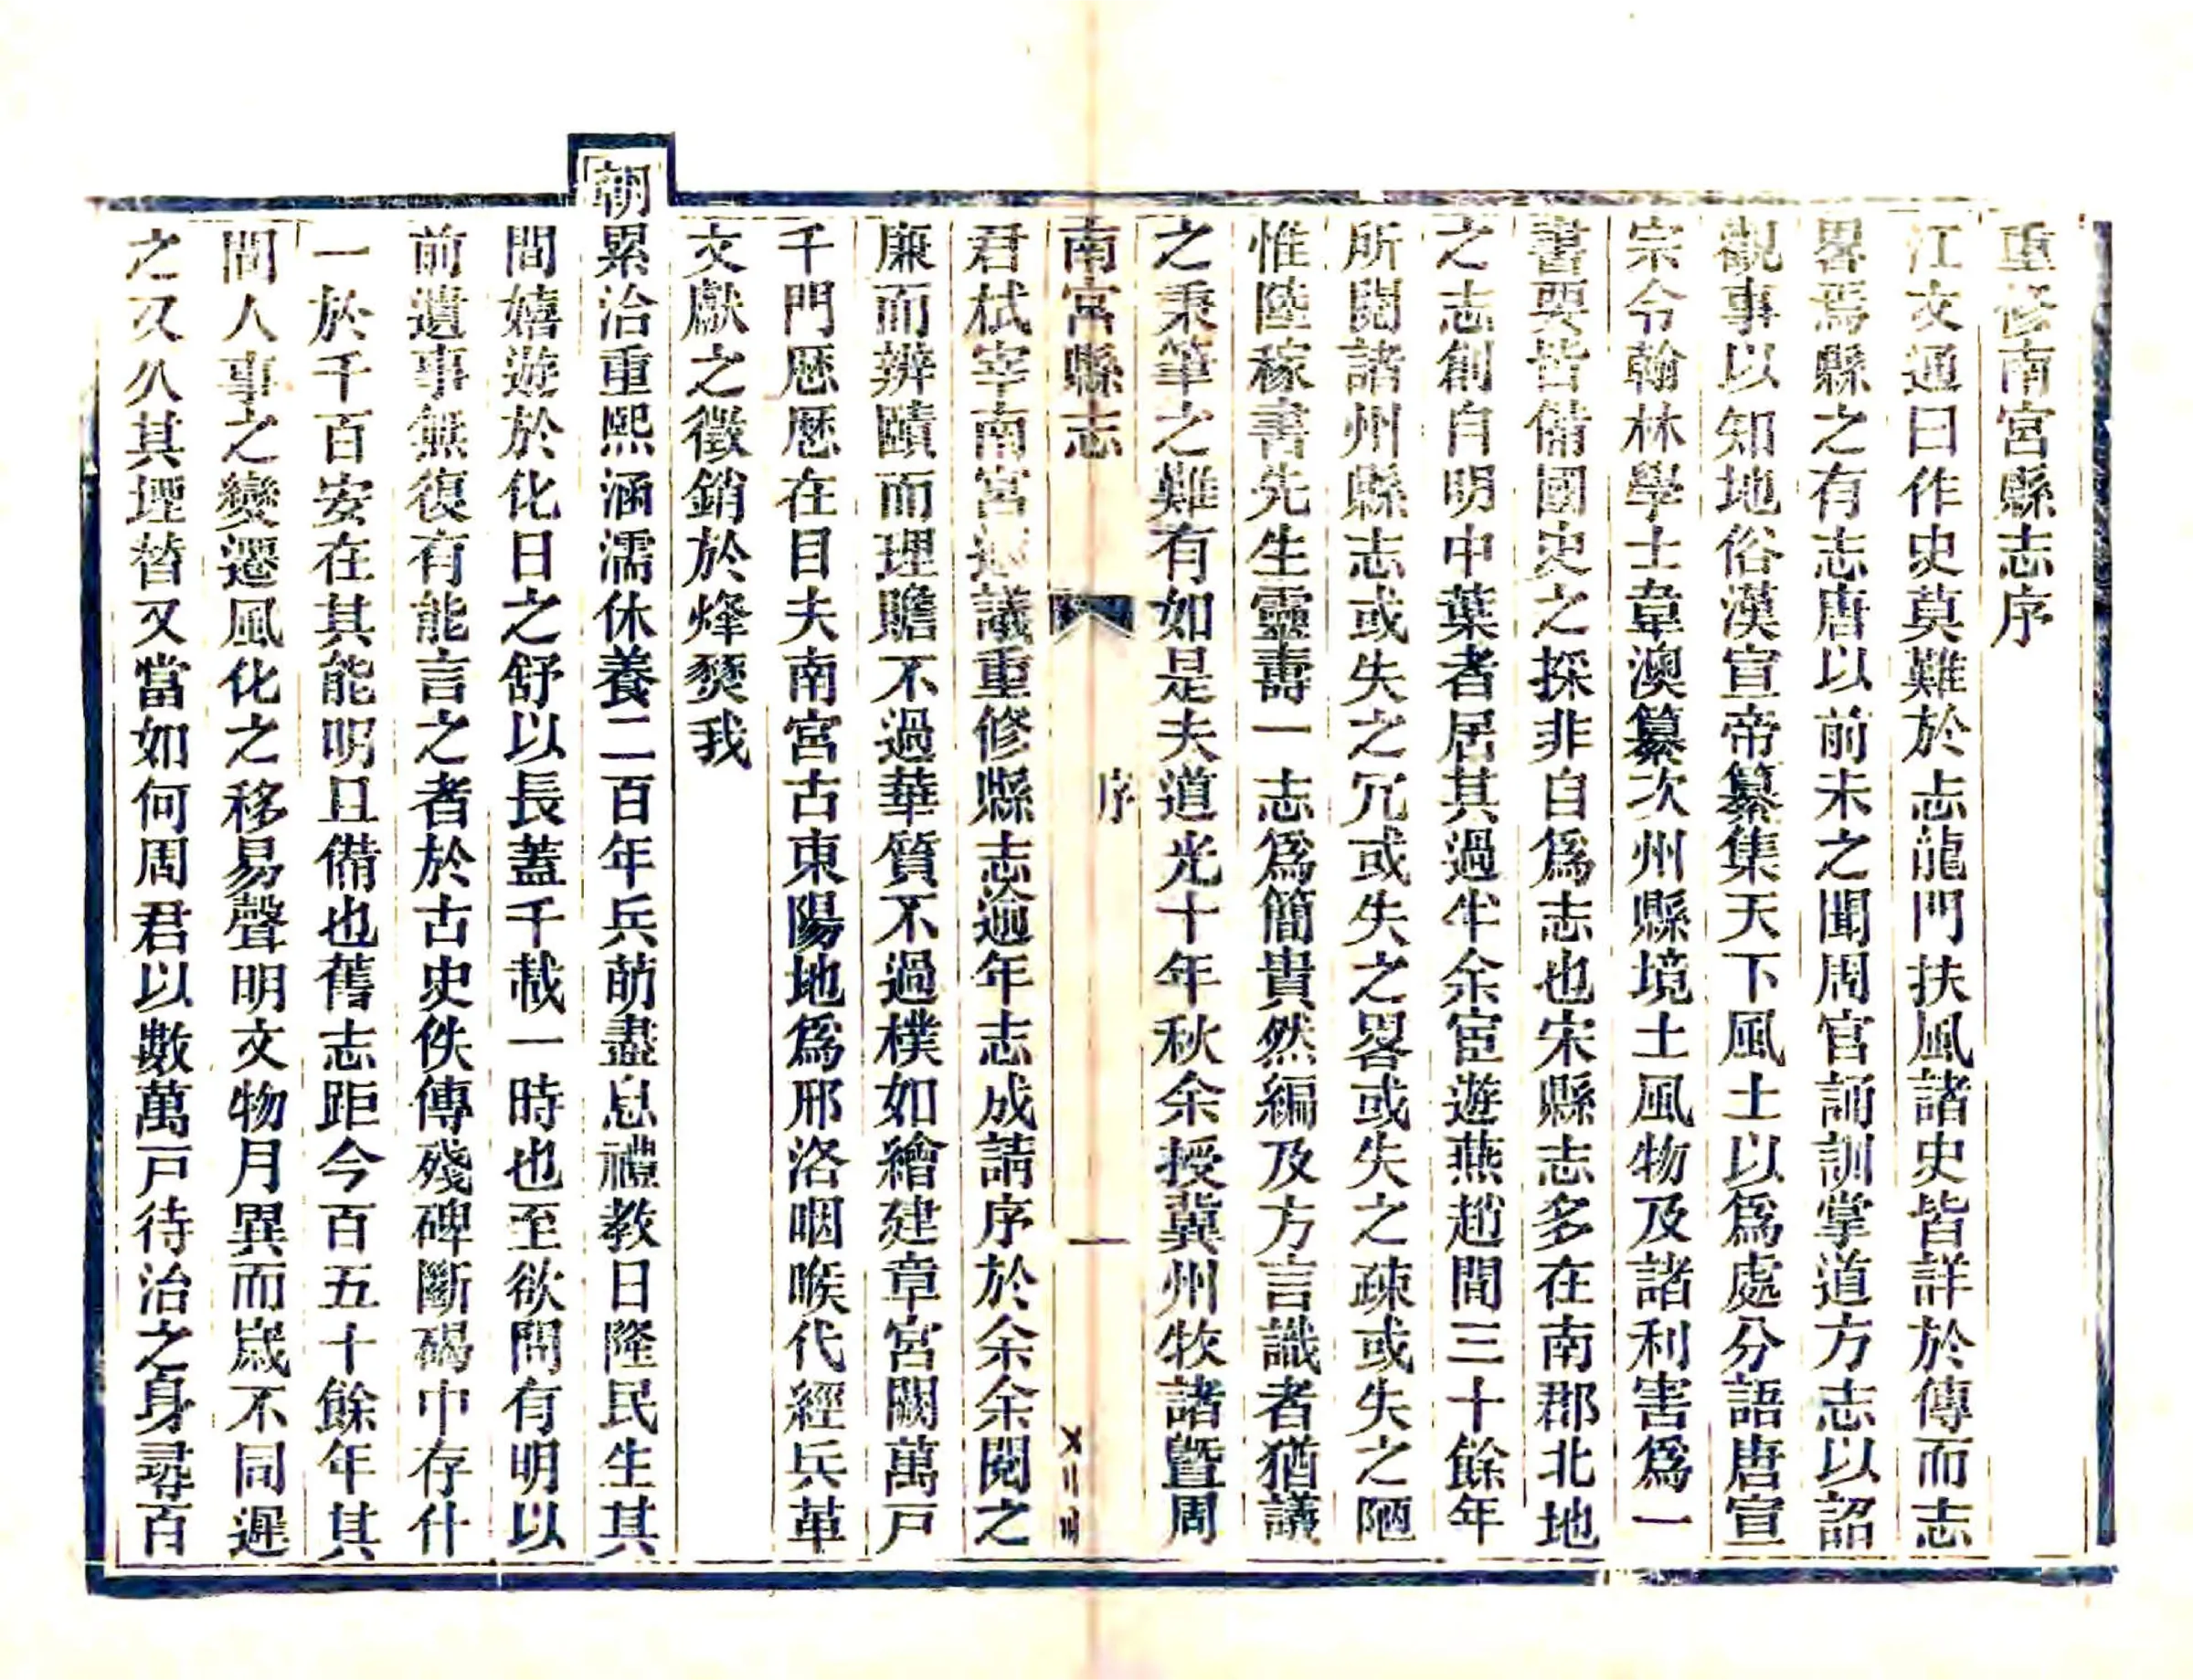 重修南宮縣志序
江文通曰作史莫難於志龍門扶風諸史皆詳於傳而志
畧焉縣之有志唐以前未之聞周官誦訓掌道方志以詔
觀事以知地俗漢宣帝纂集天下風土以爲處分語唐宣
宗令翰林學士韋澳纂次州縣境土風物及諸利害爲一
書要皆備國史之採非自爲志也宋縣志多在南郡北地
之志創自明中葉者居其過半余宦遊燕趙間三十餘年
所閱諸州縣志或失之冗或失之畧或失之疎或失之陋
惟陸稼書先生靈壽一志爲簡貴然編及方言識者猶議
之秉筆之難有如是夫道光十年秋余授冀州牧諸曁周
南宮縣志
序
一
君栻宰南宮議重修縣志逾年志成請序於余余閱之
廉而辨賾而理贍不過華質不過樸如繪建章宮闕萬戸
千門歷歷在目夫南宮古東陽地爲邢洛咽喉代經兵革
文獻之徵銷於烽燹我
朝累洽重熙涵濡休養二百年兵萌盡息禮教日隆民生其
間嬉遊於化日之舒以長蓋千載一時也至欲問有明以
前遺事無復有能言之者於古史佚傳殘碑斷碣中存什
一於千百安在其能明且備也舊志距今百五十餘年其
間人事之變遷風化之移易聲明文物月異而歲不同遲
之又久其堙替又當如何周君以數萬戸待治之身尋百